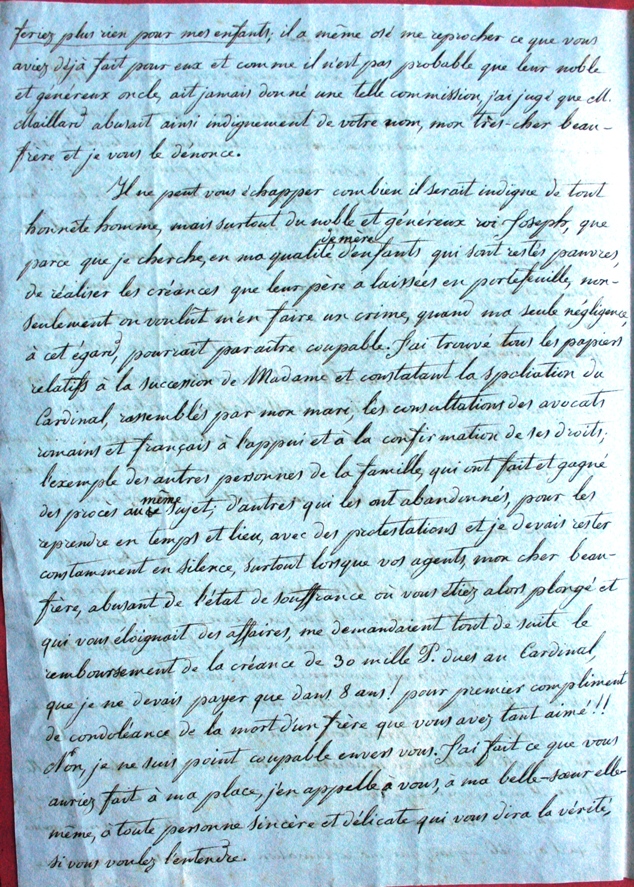 feriez plus rien pour mes enfants; il a même osé me reprocher ce que vous
aviez déjà fait pour eux et comme il n'est pas probable que leur noble
et généreux oncle, ait jamais donné une telle commission, j'ai jugé que M.
Maillard abusait ainsi indignement de votre nom, mon très-cher beau-
frère et je vous le dénonce.
Il ne peut vous échapper combien il serait indigne de tout
honnête homme, mais surtout du noble et généreux roi Joseph, que
parce que je cherche, en ma qualité de mère d'enfants qui sont restés pauvres,
de réaliser les créances que leur père a laissées en portefeuille, non-
seulement on voulût m'en faire un crime, quand ma seule négligence,
à cet égard, pourrait paraître coupable. J'ai trouvé tous les papiers
relatifs à la succession de Madame et constatant la spoliation du
Cardinal, rassemblés par mon mari; les consultations des avocats
romains et français à l'appui et à la confirmation de ses droits;
l'exemple des autres personnes de la famille, qui ont fait et gagné
des procès au même sujet; d'autres qui les ont abandonnés, pour les
reprendre en temps et lieu, avec des protestations et je devais rester
constamment en silence, surtout lorsque vos agents, mon cher beau-
frère, abusant de l'état de souffrance où vous étiez alors plongé et
qui vous éloignait des affaires, me demandaient tout de suite le
remboursement de la créance de 30 mille P. dues au Cardinal,
que je ne devais payer que dans 8 ans! pour premier compliment
de condoléance de la mort d'un frère que vous avez tant aimé!!
Non, je ne suis point coupable envers vous. J'ai fait ce que vous
auriez fait à ma place, j'en appelle à vous, à ma belle-sœur elle-
même, à toute personne sincère et délicate qui vous dira la vérité,
si vous voulez l'entendre.